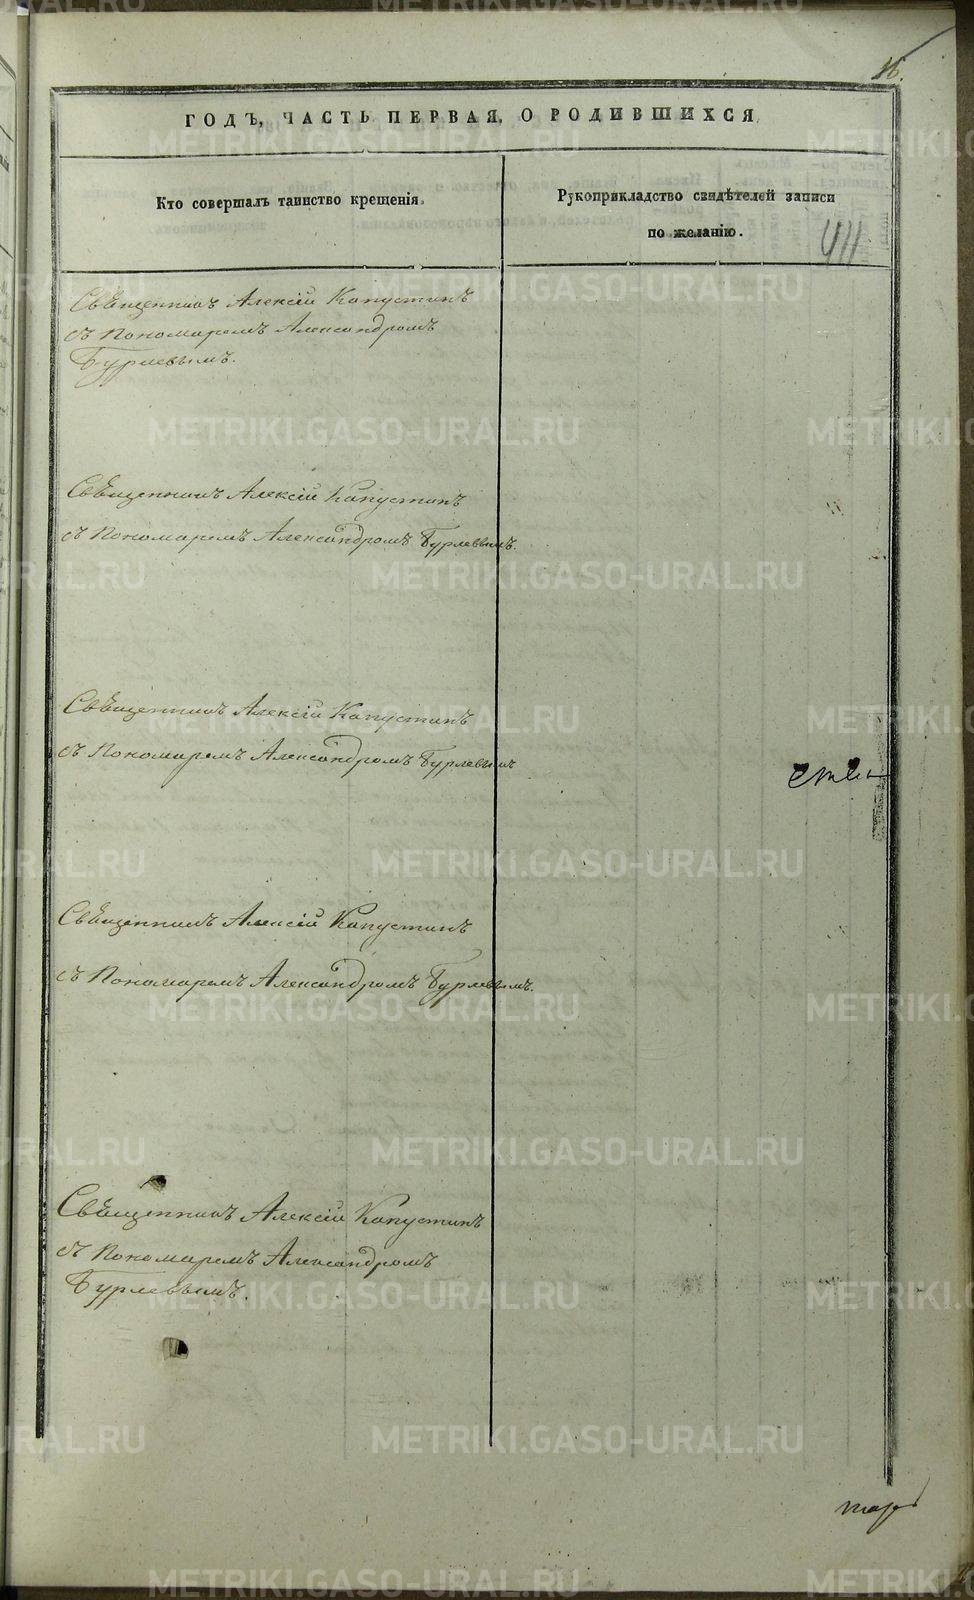 16.
ГОДЪ, ЧАСТЬ ПЕРВАЯ, О РОДИВШИХСЯ
Кто совершалъ таинство крещенія.
Рукоприкладство свидѣтелей записи
по желанію.
411
Священникъ Алексій Капустинъ
съ Пономаремъ Александромъ
Бурлевымъ.
Священникъ Алексій Капустинъ
съ Пономаремъ Александромъ Бурлевымъ.
Священникъ Алексій Капустинъ
съ Пономаремъ Александромъ Бурлевымъ
Священникъ Алексій Капустинъ
съ Пономаремъ Александромъ Бурлевымъ.
Священникъ Алексій Капустинъ
съ Пономаремъ Александромъ
Бурлевымъ.
METRIKI.GASO-URAL.RU